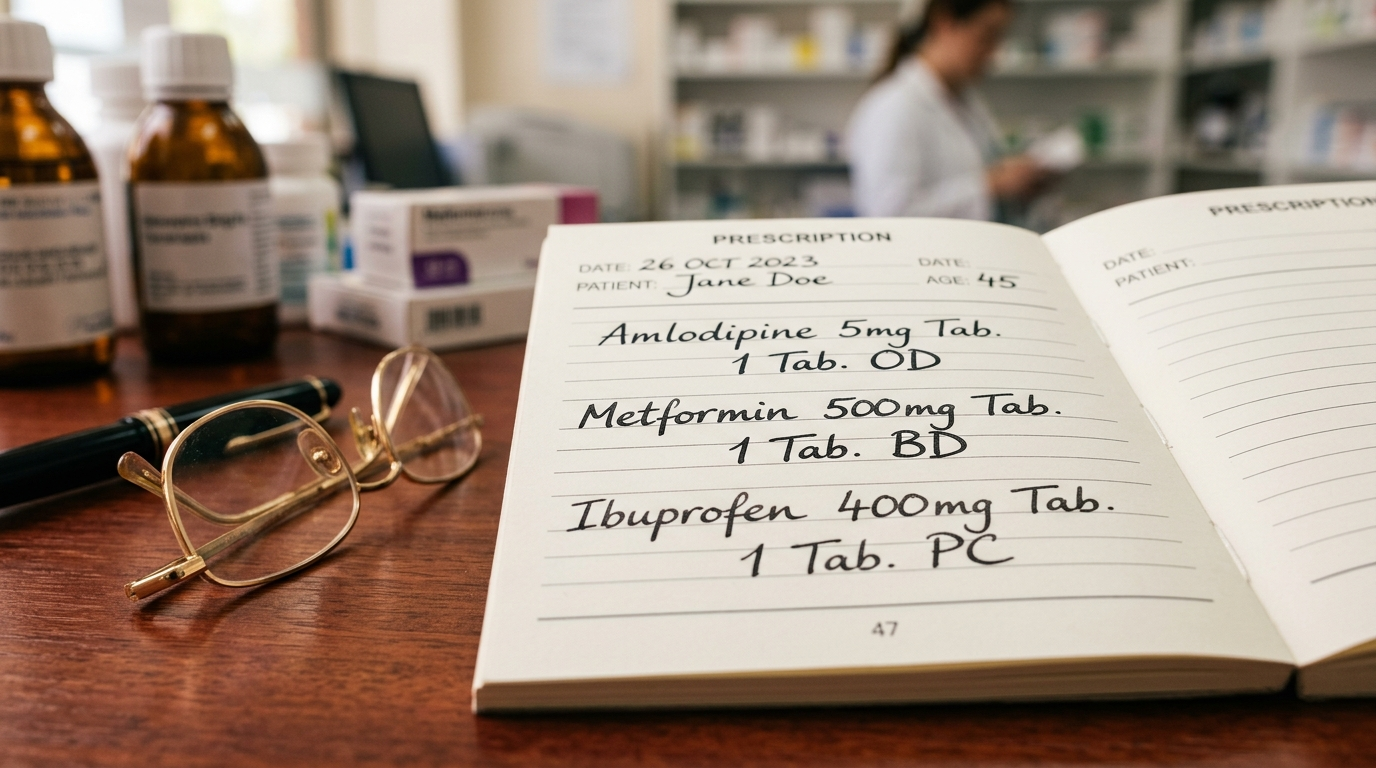 PRESCRIPTION
DATE: 26 OCT 2023 DATE:
PATIENT: Jane Doe AGE: 45
Amlodipine 5mg Tab.
1 Tab. OD
Metformin 500mg Tab.
1 Tab. BD
Ibuprofen 400mg Tab.
1 Tab. PC
47
PRESCRIPTION
DATE:
PATIENT: